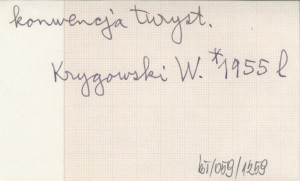 konwencja turyst.
Krygowski W. *1955 l
bT/059/1259